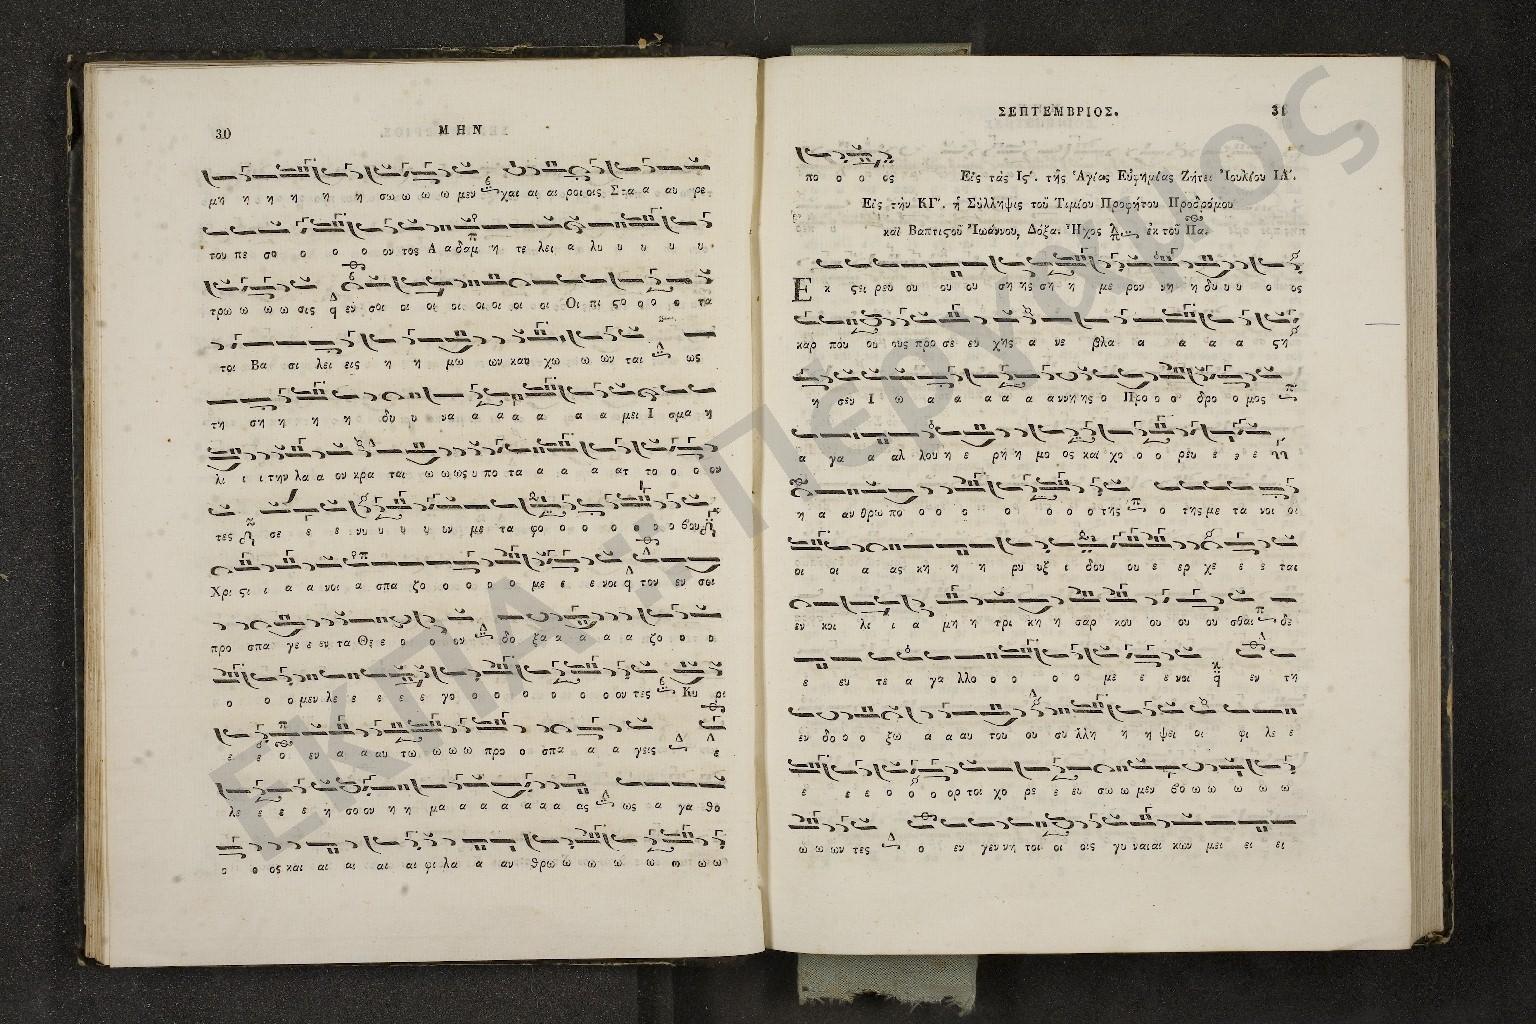 30
ΜΗΝ
μη η η η η η σω ω ω ω μεν χαι αι αι ροι οις Στα α αυ ρε
του πε σο ο ο ο ου τος Α α δαμ η τε λει α λυ υ υ υ υ
τρω ω ω ω σις εν σοι οι οι οι οι οι οι οι Οι πι ςο ο ο ο τα
τοι Βα σι λει εις η η μω ων καυ χω ω ων ται ως
τη ση η η η δυ υ να α α α α α α μει Ι σμα η
λι ι ι την λα α ον κρα ται ω ω ως υ πο τα α α α ατ το ο ο ον
τες σε ε ε νυ υ υ υ υν με τα φο ο ο ο ο ο ο βου
Χρι ςι ι α α νοι α σπα ζο ο ο ο ο με ε ε νοι τον εν σοι
προ σπα γε ε εν τα Θε ε ο ο ον δο ξα α α α α ζο ο ο
ο ο ο μεν λε ε ε ε ε γο ο ο ο ο ο ο ον τες Κυ ρι
ε ε ο εν α α αυ τω ω ω ω προ ο σπα α α γεις ε
λε ε ε ε η σο ον η η μα α α α α α α ας ως α γα θο
ο ο ος και αι αι αι αι φι λα α αν θρω ω ω ω ω ω ω ω
ΣΕΠΤΕΜΒΡΙΟΣ.
31
πο ο ο ος Εἰς τὰς Ις΄. τῆς Ἁγίας Εὐφημίας Ζήτει Ἰουλίου ΙΑ΄.
Εἰς τὴν ΚΓ΄. ἡ Σύλληψις τοῦ Τιμίου Προφήτου Προδρόμου
καὶ Βαπτιςοῦ Ἰωάννου, Δόξα. Ἦχος ἐκ τοῦ Πα.
Εκ ςει ρευ ου ου ου ση ης ση η με ρον νη η δυ υ υ ο ος
καρ που ου ους προ σε ευ χης α νε βλα α α α α ςη
η σεν Ι ω α α α α α ν νη ης ο Προ ο ο δρο ο μος
α γα α αλ λου η ε ρη η μο ος και χο ο ο ρευ ε ε ε
η α αν θρω πο ο ο ο ο ο ο ο της ο της με τα νοι οι
οι οι α ας κη η η ρυ υξ ι δου ου ε ερ χε ε ε ται
εν κοι λι ι α μη η τρι κη η σαρ κου ου ου ου σθαι δε
ε ευ τε α γα λλο ο ο ο ο με ε ε νοι εν τη
εν δο ο ο ξω α α αυ του ου συ λλη η η ψει οι φι λε ε
ε ε ε ο ο ορ τοι χο ρε ε ευ σω ω μεν βο ω ω ω ω ω
ω ω ων τες ο εν γεν νη τοι οι οις γυ ναι αι κων μει ει ει
ΕΚΠΑ : Πέργαμος